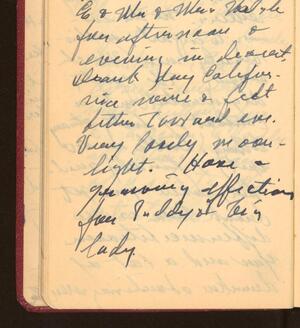 E & Mr & Mrs
for afternoon &
evening in desert.
Drank Day Califor-
nia wine & felt
better toward eve.
Very lovely moon-
light. Have a
growing affection
for Buddy &
lady.